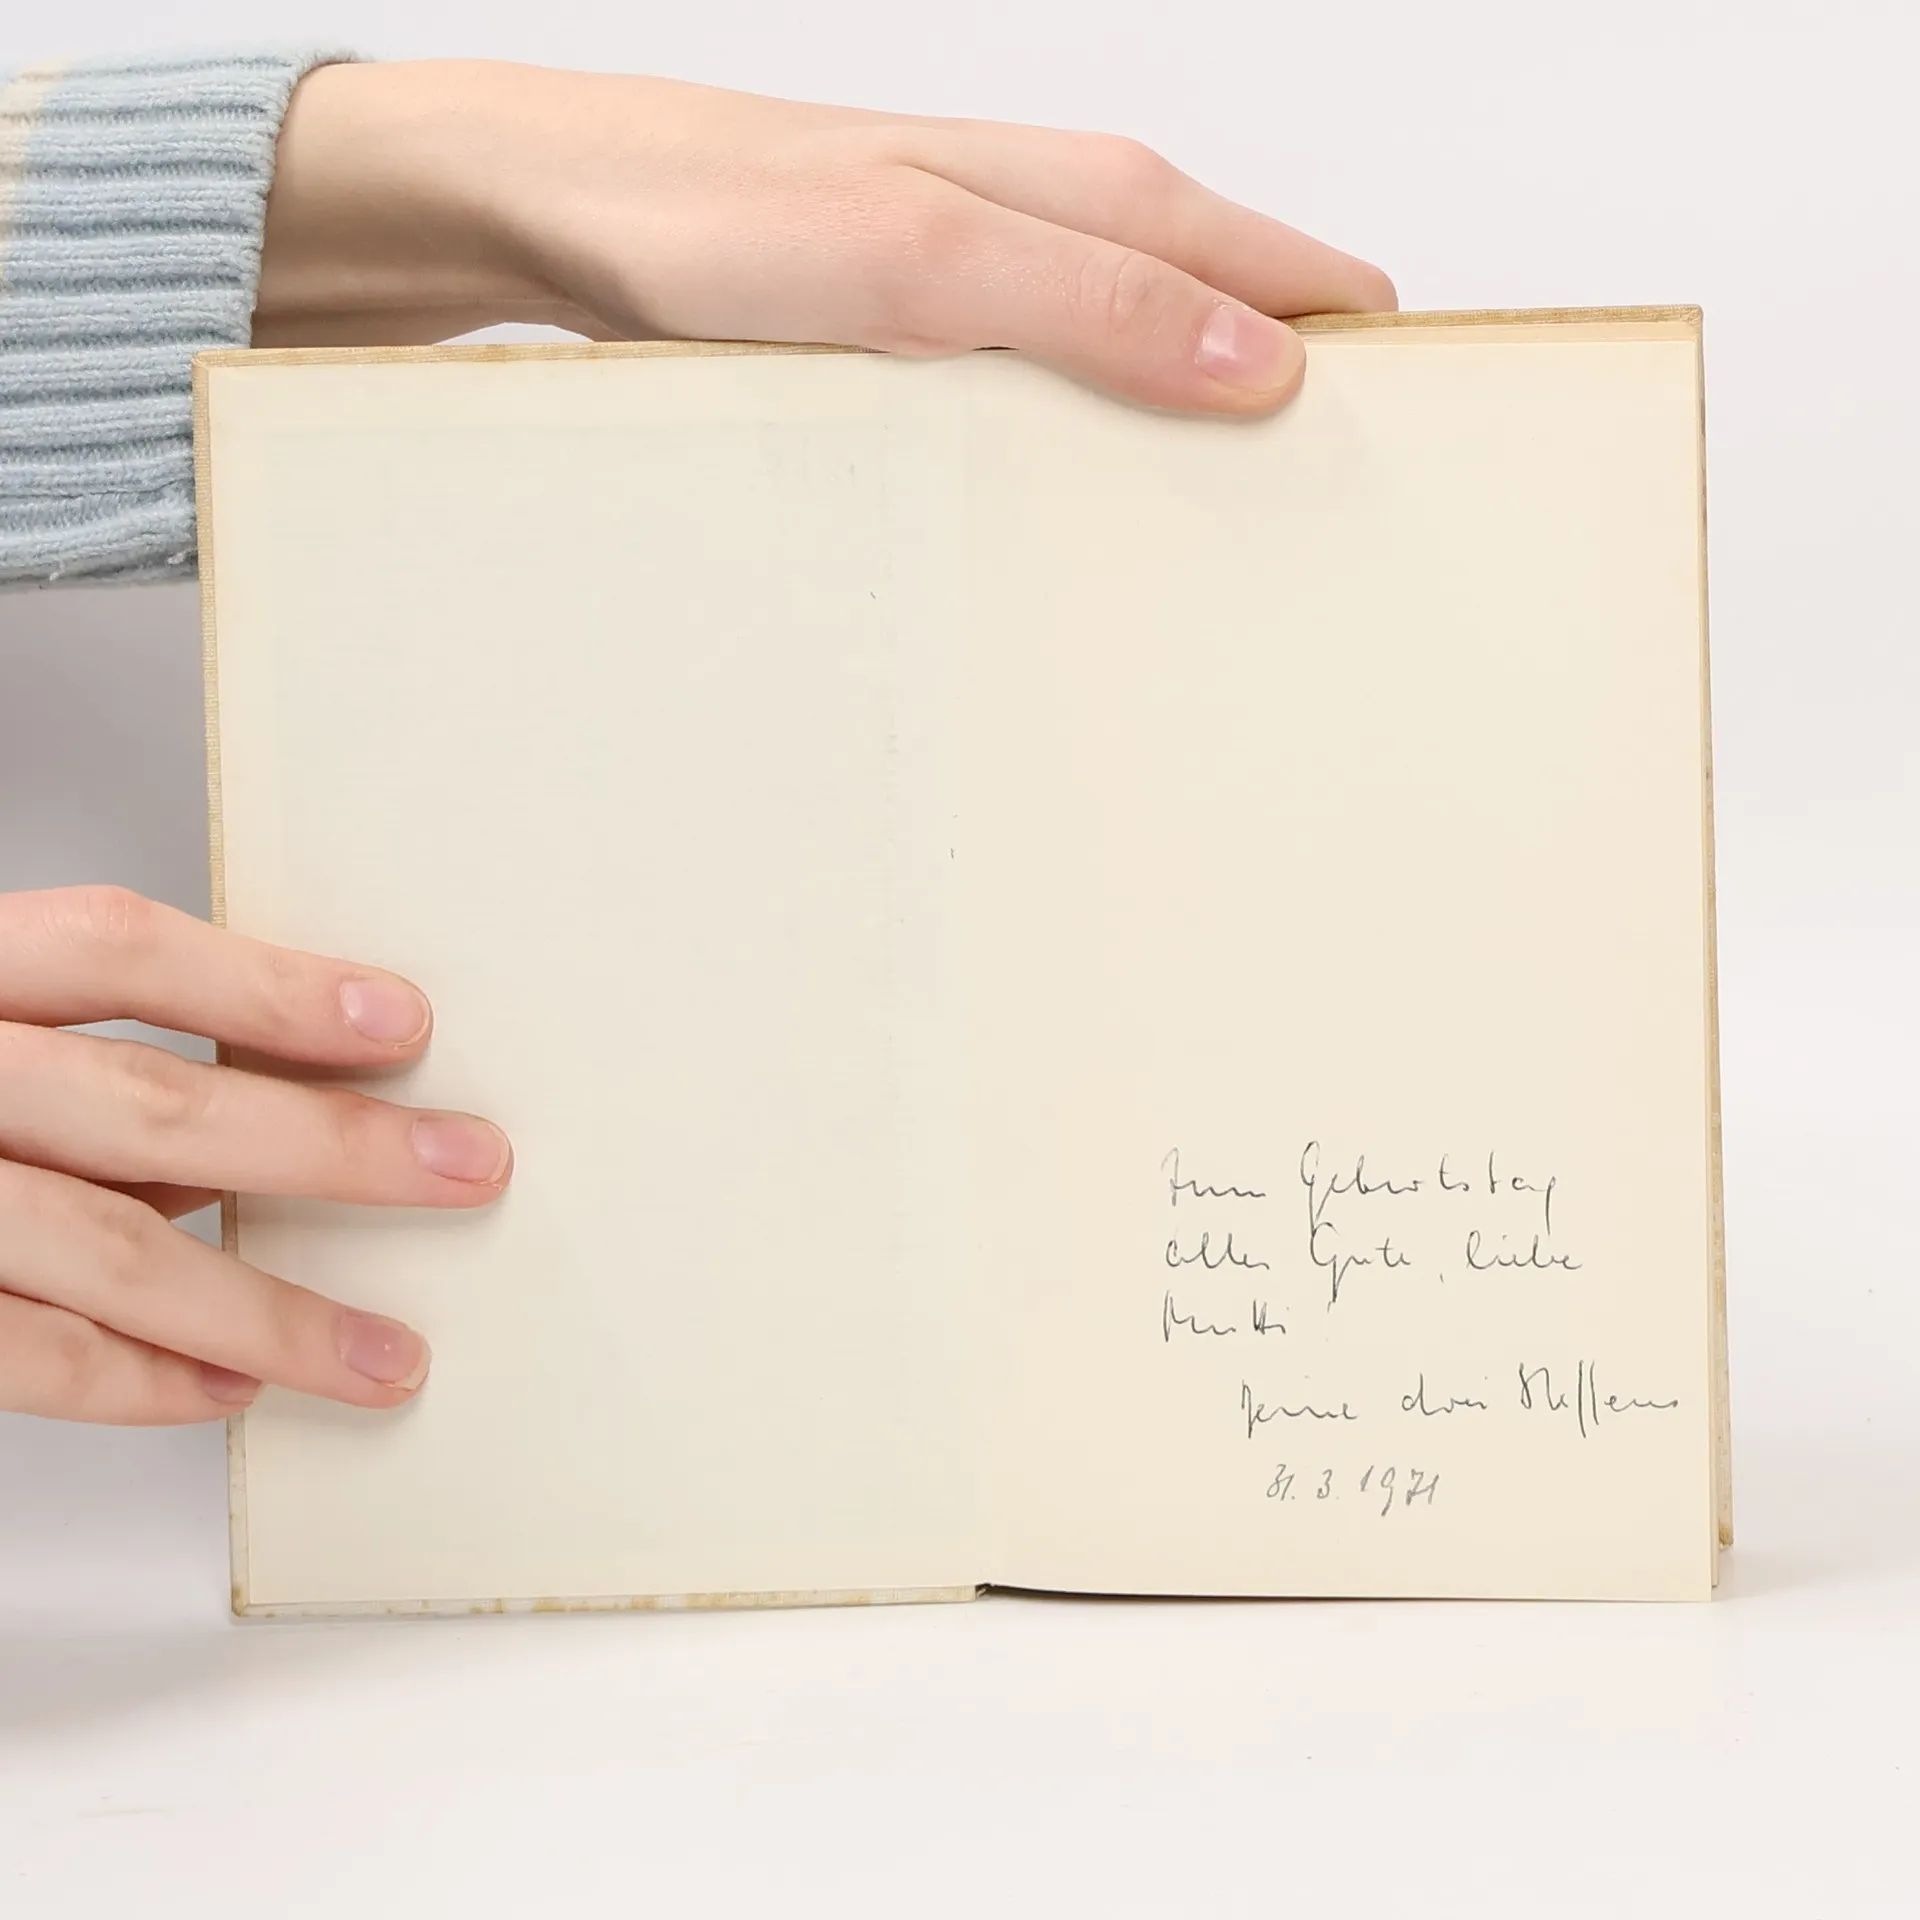 Zum Geburtstag
alles Gute, liebe
Mutti!
Deine drei Steffens
31. 3. 1971